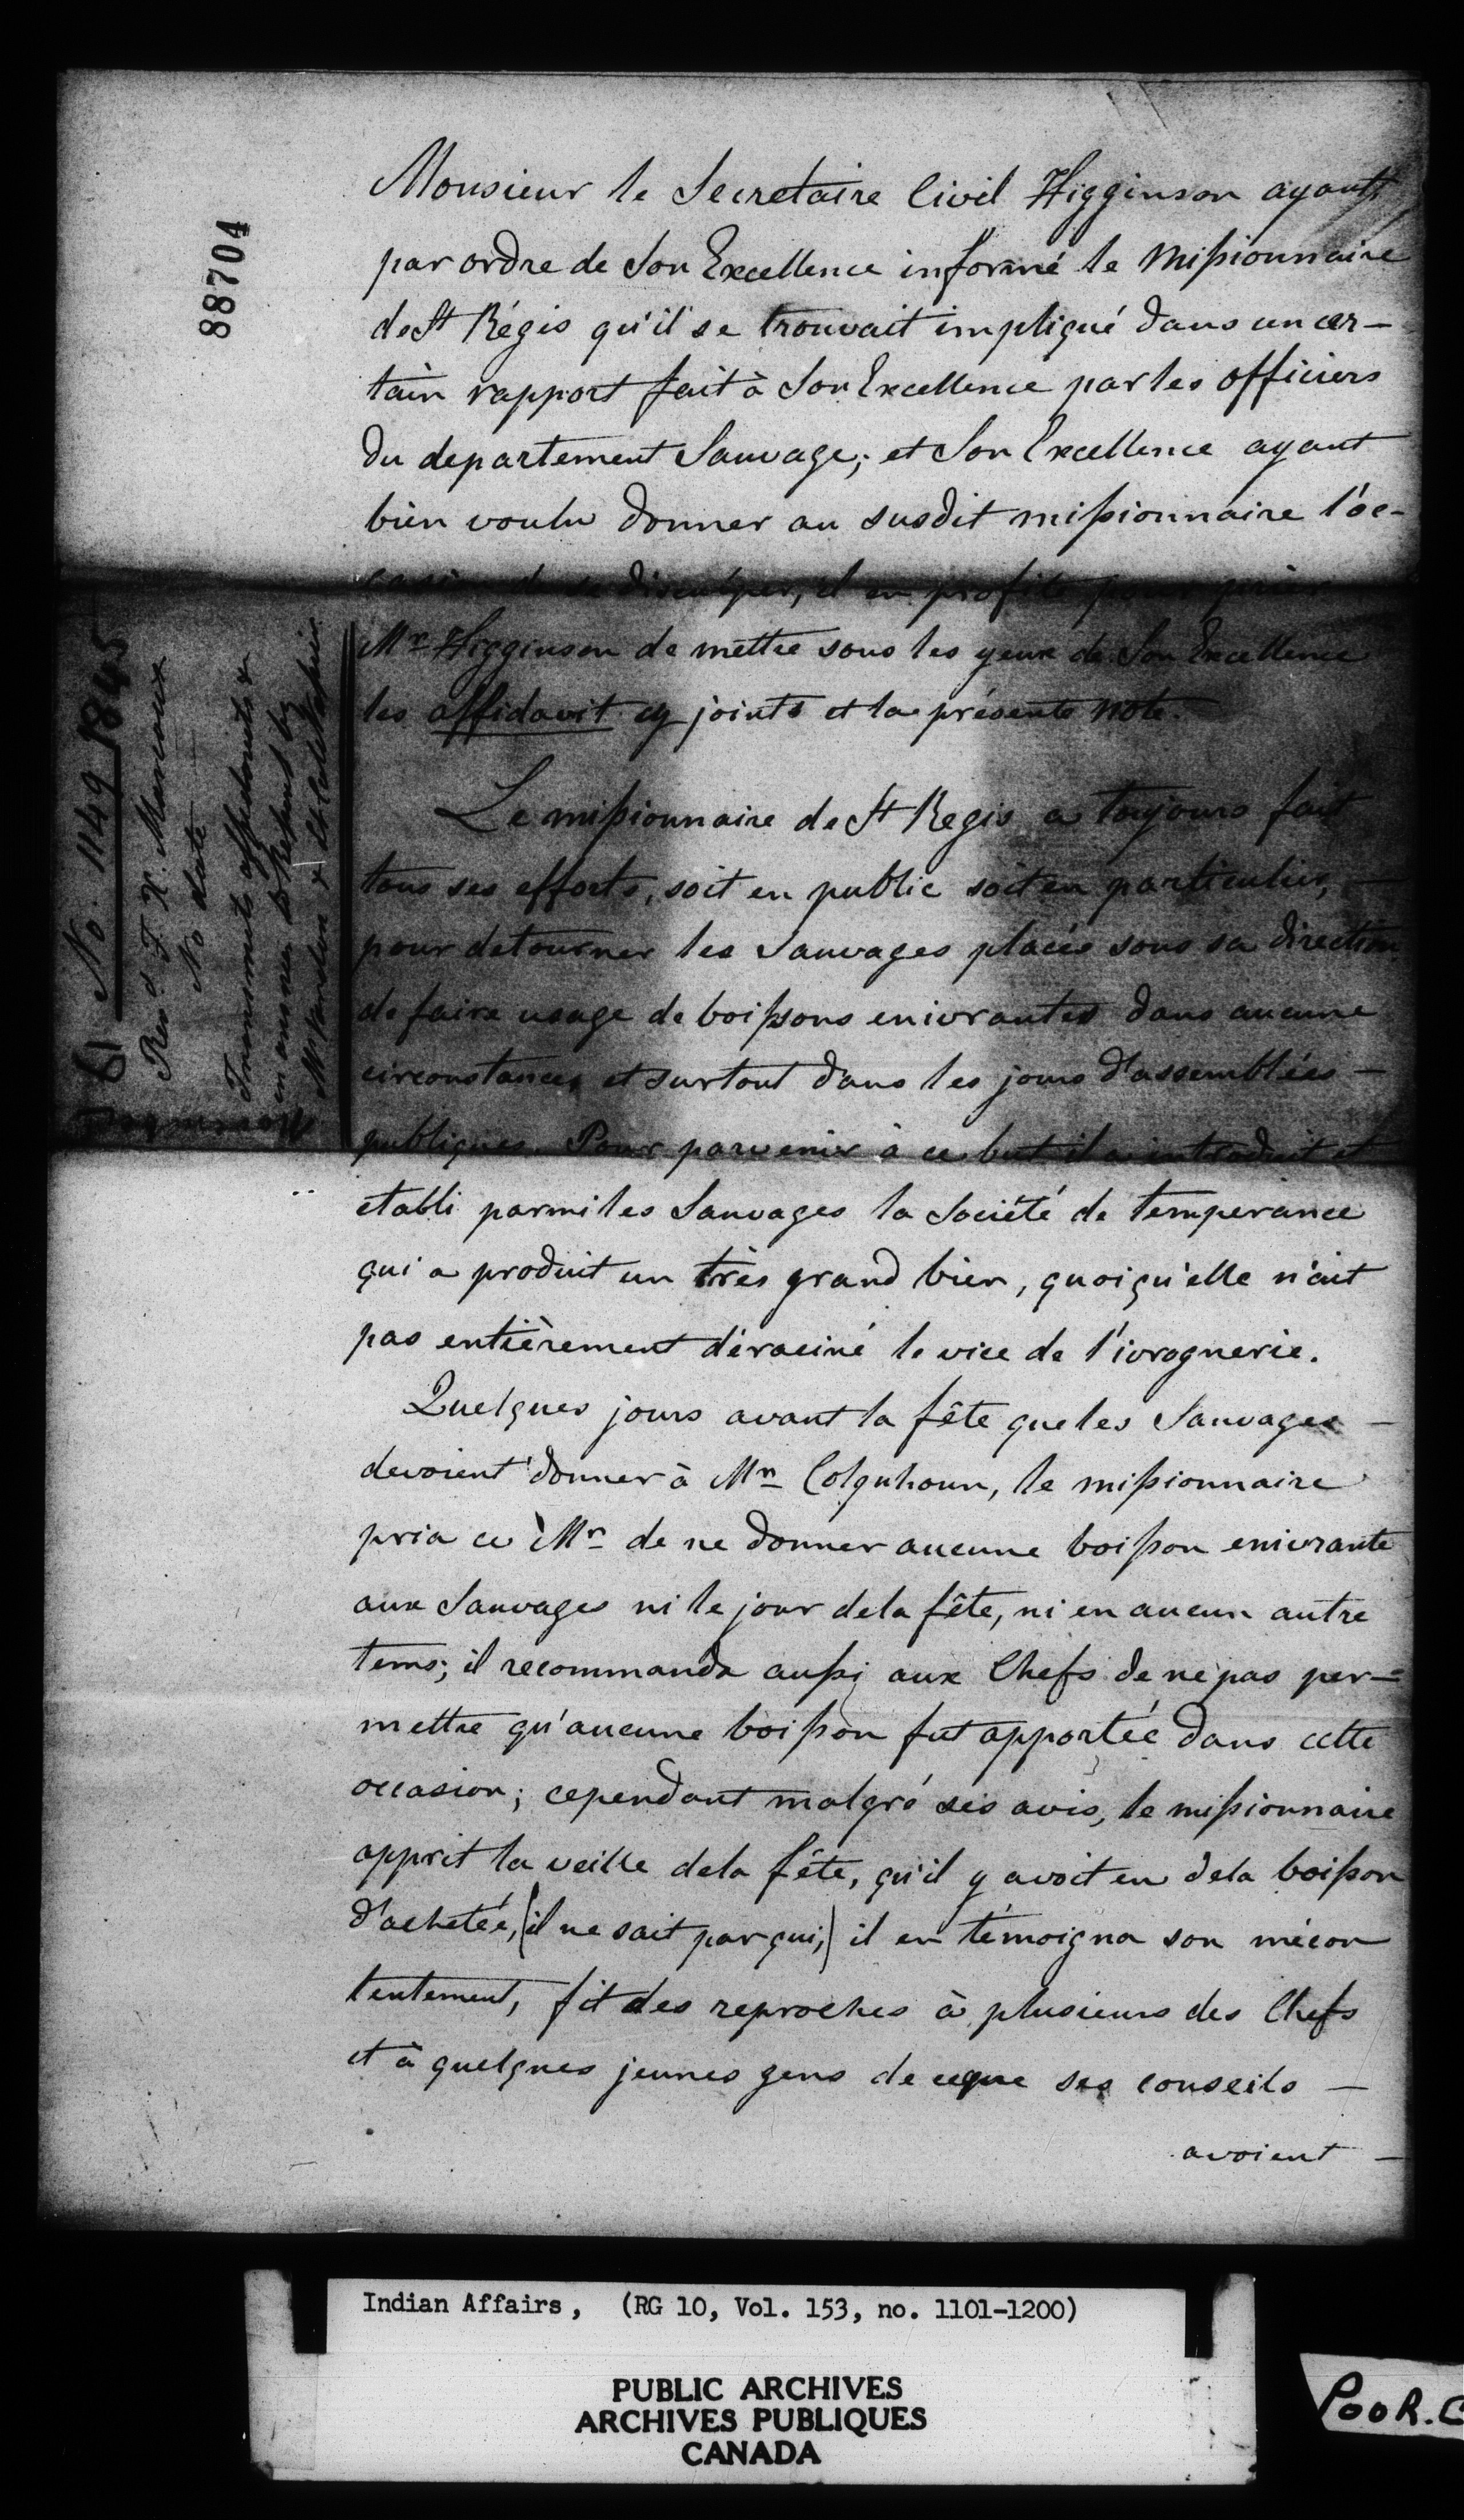 Monsieur le Secretaire Civil Higginson ayant
par ordre de Son Excellence informé le Missionnaire
de St Régis qu'il se trouvait impliqué dans un cer-
tain rapport fait à Son Excellence par les officiers
du departement Sauvage; et Son Excellence ayant
bien voulu donner au susdit missionnaire l'oc-
casion de se disculper, il en profite pour prier
Mr Higginson de mettre sous les yeux de Son Excellence
les affidavit cy joints et la présente note.
Le missionnaire de St Regis a toujours fait
tous ses efforts, soit en public soit en particulier,
pour detourner les Sauvages placés sous sa direction
de faire usage de boissons enivrantes dans aucune
circonstances et surtout dans les jours d'assemblées -
publiques. Pour parvenir à ce but il a introduit et
etabli parmi les Sauvages la Société de temperance
qui a produit un très grand bien, quoiqu'elle n'ait
pas entièrement déraciné le vice de l'ivrognerie.
Quelques jours avant la fête que les Sauvages -
devoient donner à Mr Colquhoun, le missionnaire
pria ce Mr de ne donner aucune boisson enivrante
aux Sauvages ni le jour dela fête, ni en aucun autre
tems; il recommanda aussi aux Chefs de ne pas per-
mettre qu'aucune boisson fut apportée dans cette
occasion; cependant malgré ses avis, le missionnaire
apprit la veille dela fête, qu'il y avoit eu dela boisson
d'achetée, (il ne sait par qui,) il en témoigna son mécon
tentement, fit des reproches à plusieurs des Chefs
et à quelques jeunes gens de ceque ses conseils -
avoient -
88704
61 No. 1149 1845
Revd. F. X. Marcoux
No date
Transmits affidavits &
in answer to Report by
& Lt Col Napier
Indian Affairs, (RG 10, Vol. 153, no. 1101-1200)
PUBLIC ARCHIVES
ARCHIVES PUBLIQUES
CANADA
POOR.C